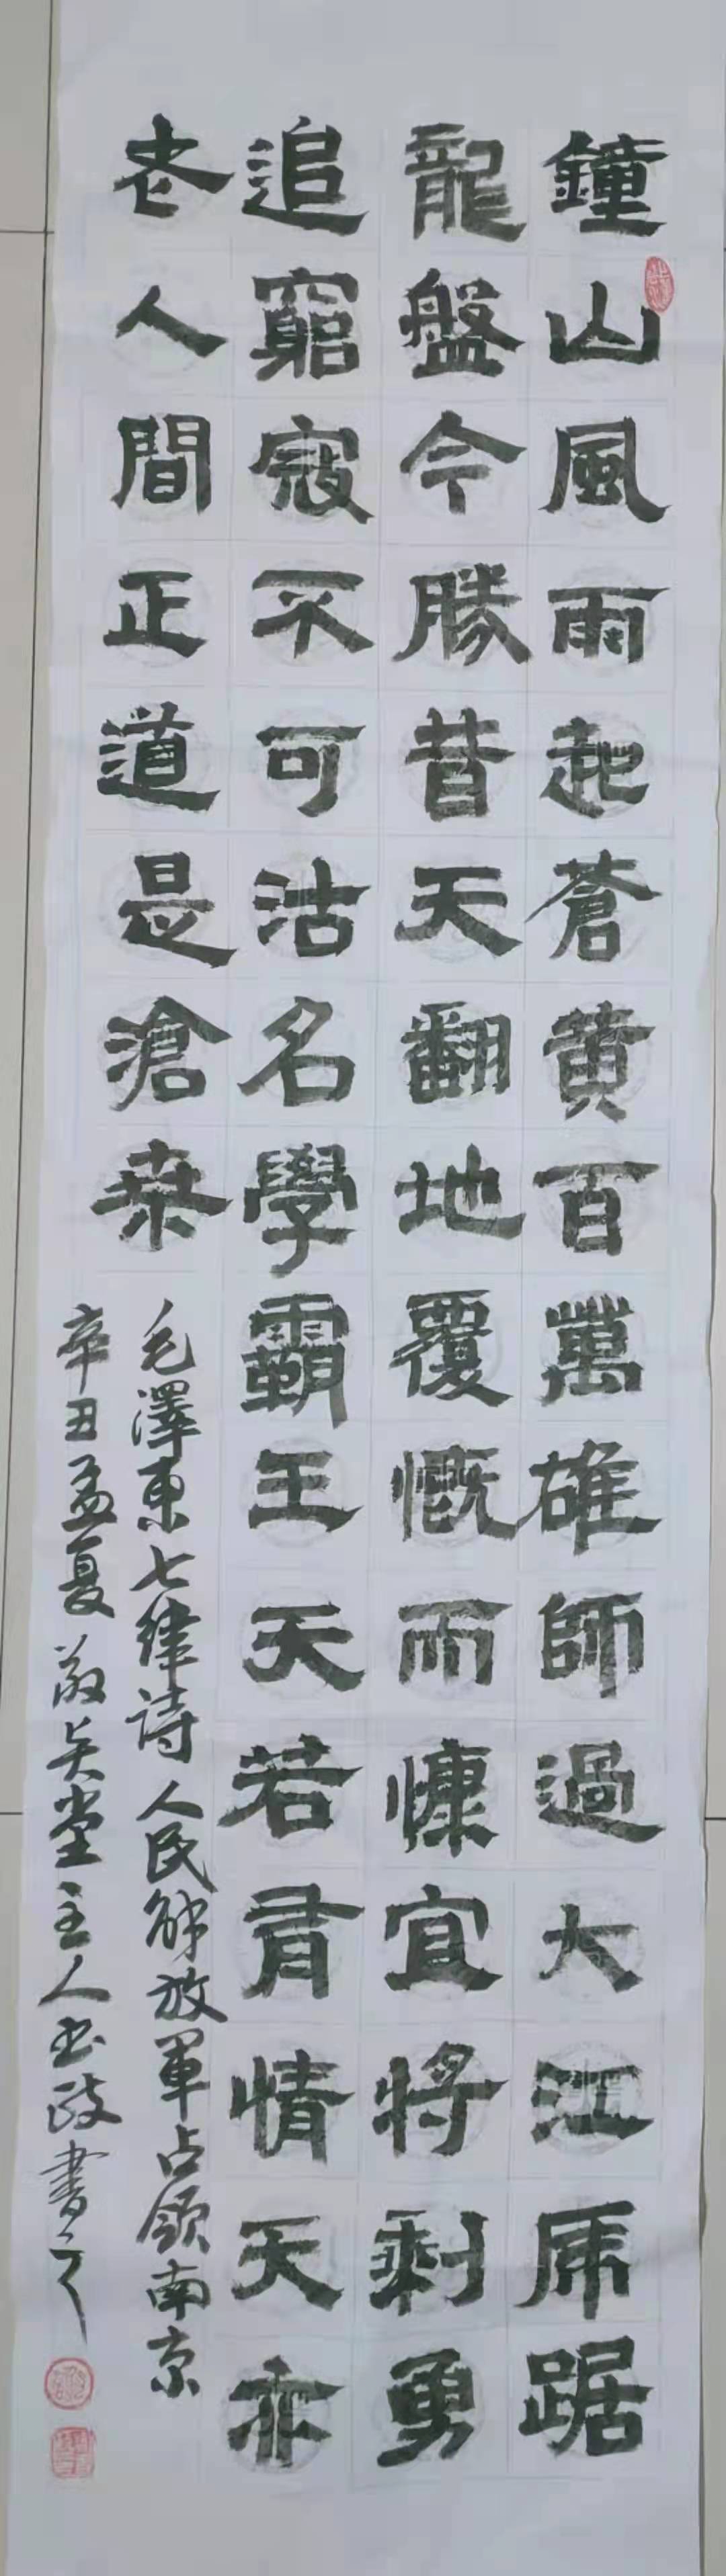 鐘山風雨起蒼黄百萬雄師過大江虎踞
龍盤今勝昔天翻地覆慨而慷宜將剩勇
追窮寇不可沽名學霸王天若有情天亦
老人間正道是滄桒
毛澤東七律诗人民解放軍占领南京
辛丑孟夏 堂主人 書之